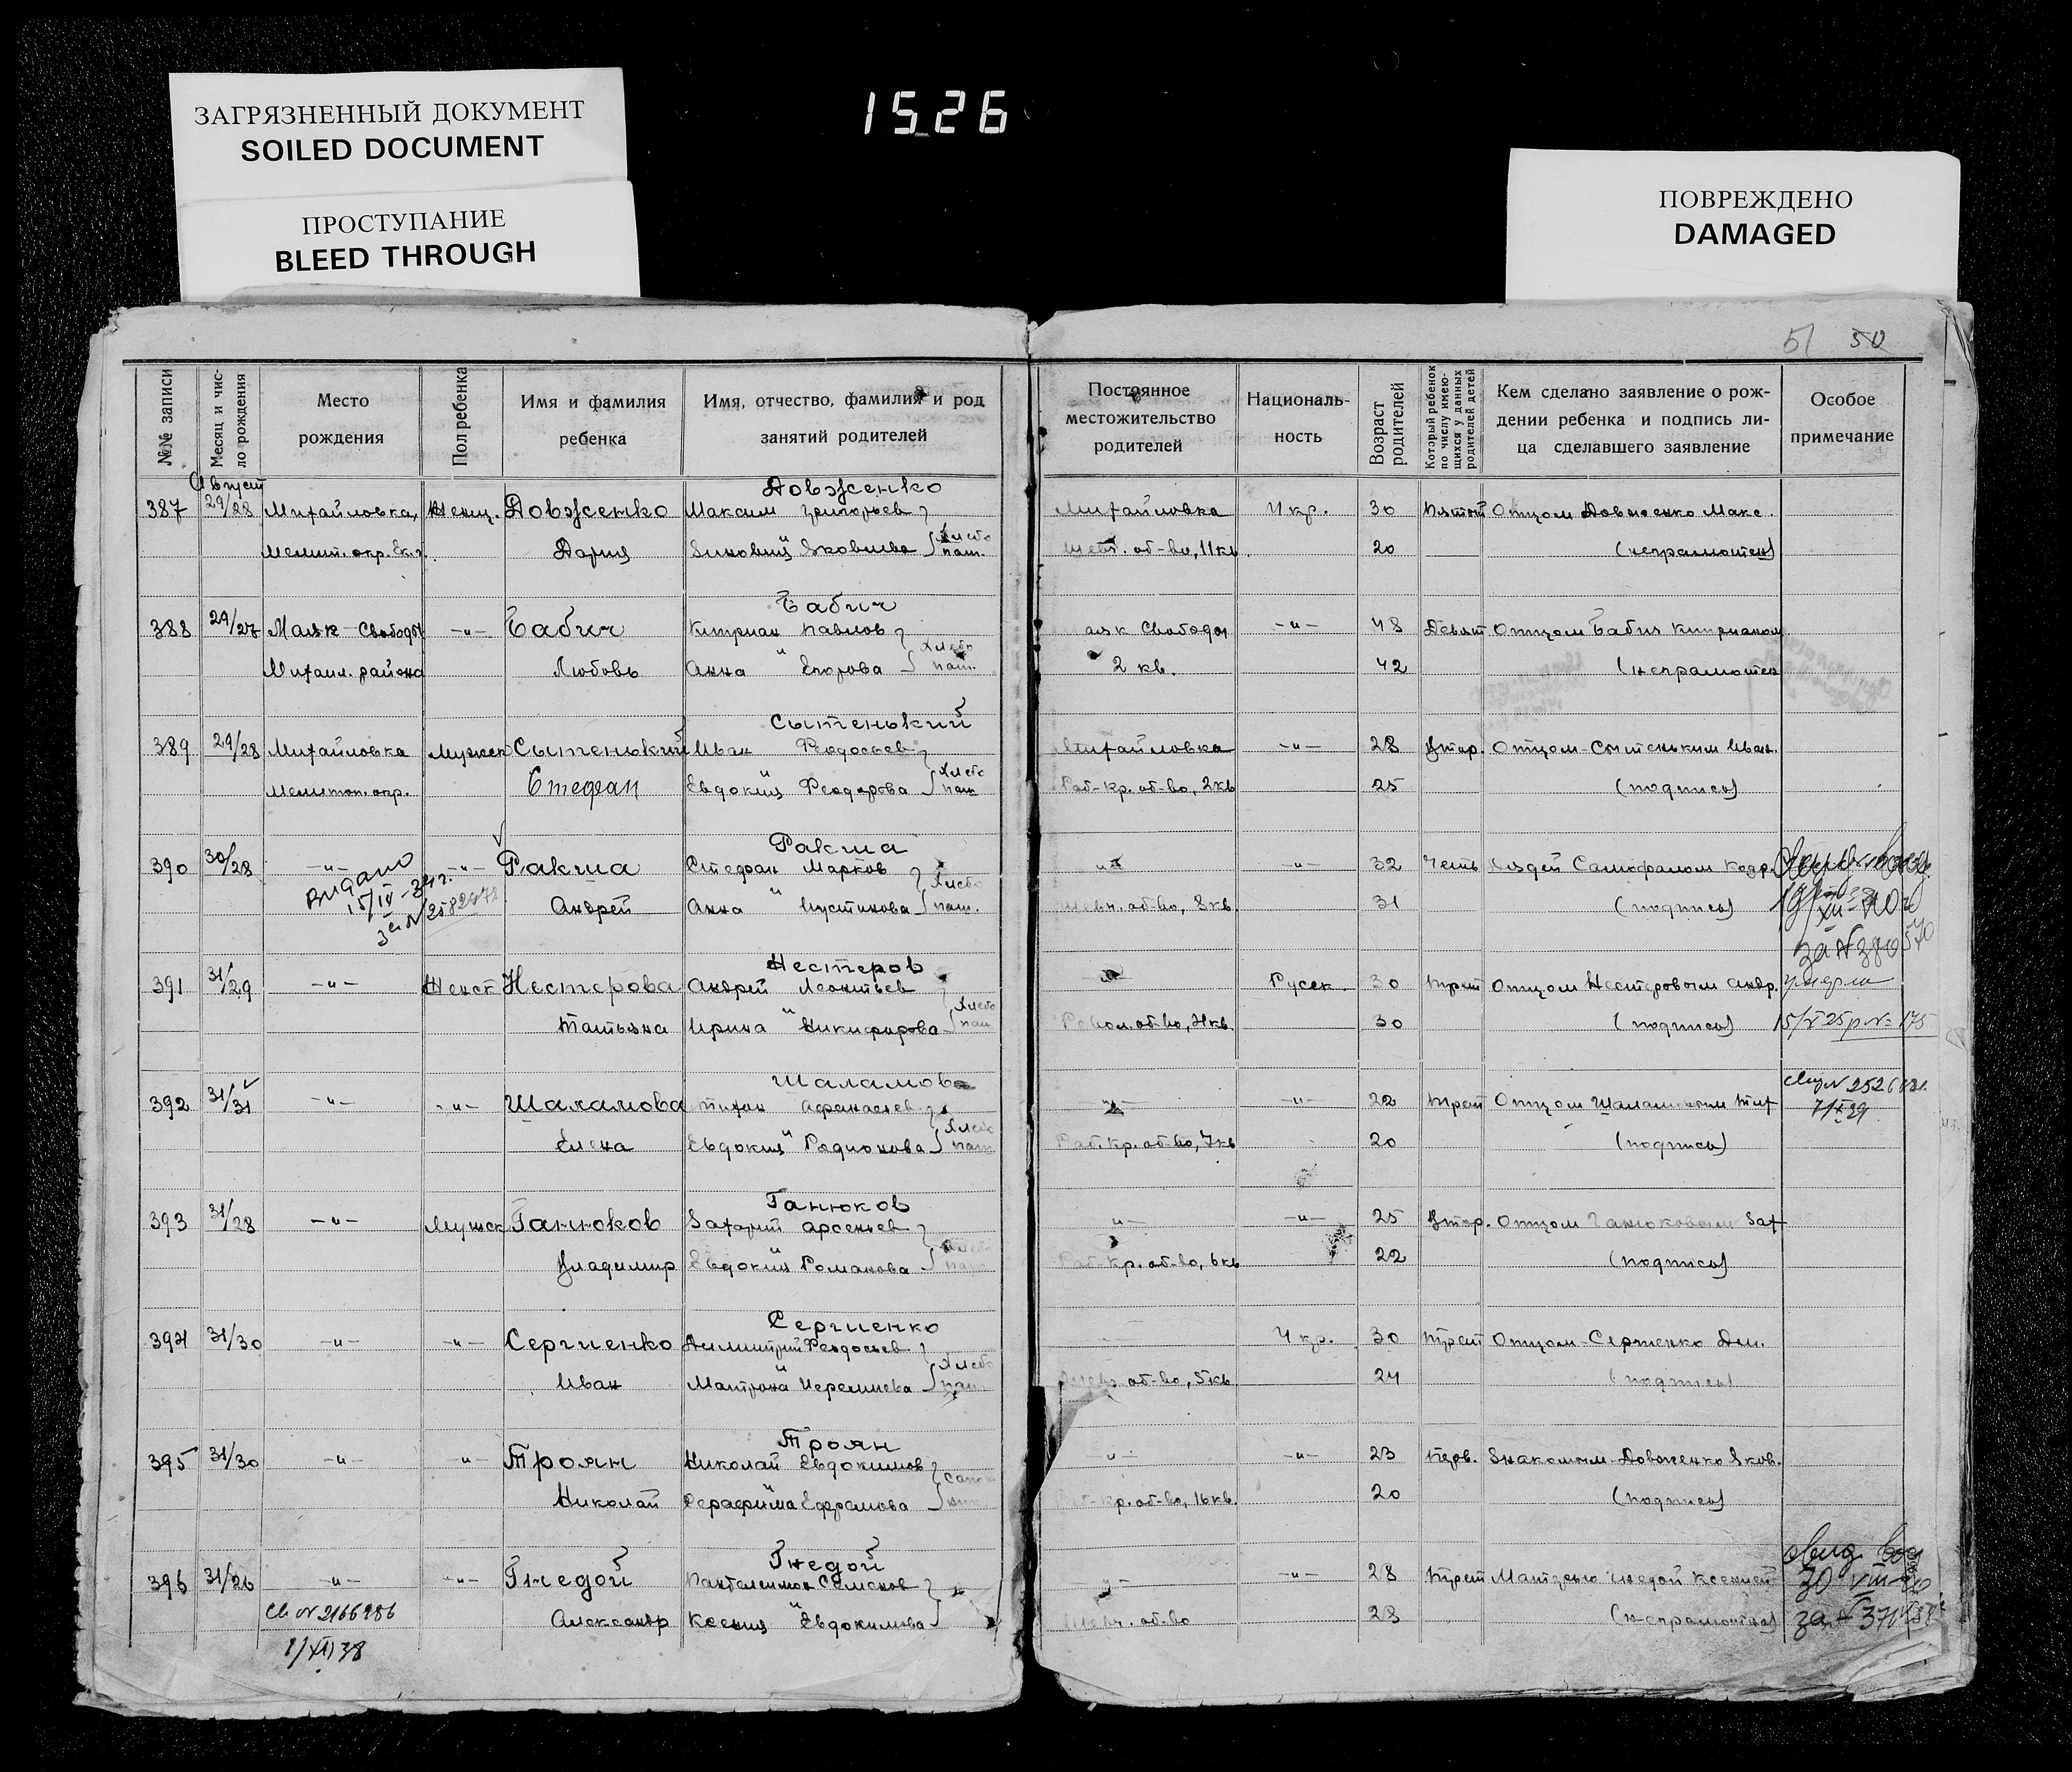 ЗАГРЯЗНЕННЫЙ ДОКУМЕНТ
SOILED DOCUMENT
ПРОСТУПАНИЕ
BLEED THROUGH
1526
ПОВРЕЖДЕНО
DAMAGED
51 50
№№ записи
Месяц и чис-
ло рождения
Место
рождения
Пол ребенка
Имя и фамилия
ребенка
Имя, отчество, фамилия и род
занятий родителей
Постоянное
местожительство
родителей
Националь-
ность
Возраст
родителей
Который ребенок
по числу имею-
щихся у данных
родителей детей
Кем сделано заявление о рож-
дении ребенка и подпись ли-
ца сделавшего заявление
Особое
примечание
Август Довженко
387 29/28 Михайловка, Женщ. Довженко Максим Григорьев Михайловка Укр. 30 Пятый Отцом Довженко Макс.
Мелит. окр. Ек. г. Дария Зиновия Яковлева Хлебопаш. Шевч. об-во, 11 кв. 20 (неграмотен)
Бабич
388 29/27 Маяк-Свободы -"- Бабич Киприан Павлов Маяк Свободы -"- 48 Девят Отцом Бабич Киприаном
Михайл. района Любовь Анна " Егорова Хлебопаш. 2 кв. 42 (неграмотен
Сытенький
389 29/28 Михайловка Мужск Сытенький Иван Феодосьев Михайловка -"- 28 Втор. Отцом Сытеньким Иван.
Мелитоп. окр. Стефан Евдокия Феодорова Хлебопаш Раб-кр. об-во, 2 кв 25 (подпись)
Ракша
390 30/28 -"- -"- Ракша Стефан Марков -"- -"- 32 Четв Дядей Самофалом
Видано
15/IV-34 г.
Андрей Анна " Иустинова Хлебопаш. Шевч. об-во, 8 кв. 31 (подпись)
Нестеров
391 31/29 -"- Женск Нестерова Андрей Леонтьев -"- Русск. 30 Трет Отцом Нестеровым Андр. умерла
Татьяна Ирина " Никифорова Хлебопаш Револ. об-во, 4 кв. 30 (подпись) 15/V 25 р. № 175
Шаламов
392 31/31 -"- -"- Шаламова Тихон Афанасьев -"- -"- 22 Трет Отцом Шаламовым Тих
7/X 39
Елена Евдокия " Родионова Хлебопаш Раб. кр. об-во, 7 кв 20 (подпись)
Ганюков
393 31/28 -"- Мужск Ганюков Захарий Арсеньев -"- -"- 25 Втор. Отцом Ганюковым Зах
Владимир Евдокия Романова Раб-кр. об-во, 6 кв 22 (подпись)
Сергиенко
394 31/30 -"- -"- Сергиенко Димитрий Феодосьев Укр. 30 Трет Отцом-Сергиенко Дм.
Иван Матрона Иеремиева Хлебопаш. Шевч. об-во, 5 кв 24 (подпись)
Троян
395 31/30 -"- -"- Троян Николай Евдокимов -"- -"- 23 Перв. Знакомым Довженко Яков.
Николай Серафима Ефремова кр. об-во, 16 кв. 20 (подпись)
Гнедой
396 31/26 -"- -"- Гнедой Пантелеимон Семенов -"- -"- 28 Трет Матерью Гнедой Ксенией
Св № 2166986
Александр Ксения " Евдокимова Шевч. об-во 28 (неграмотна)
1/XI 38